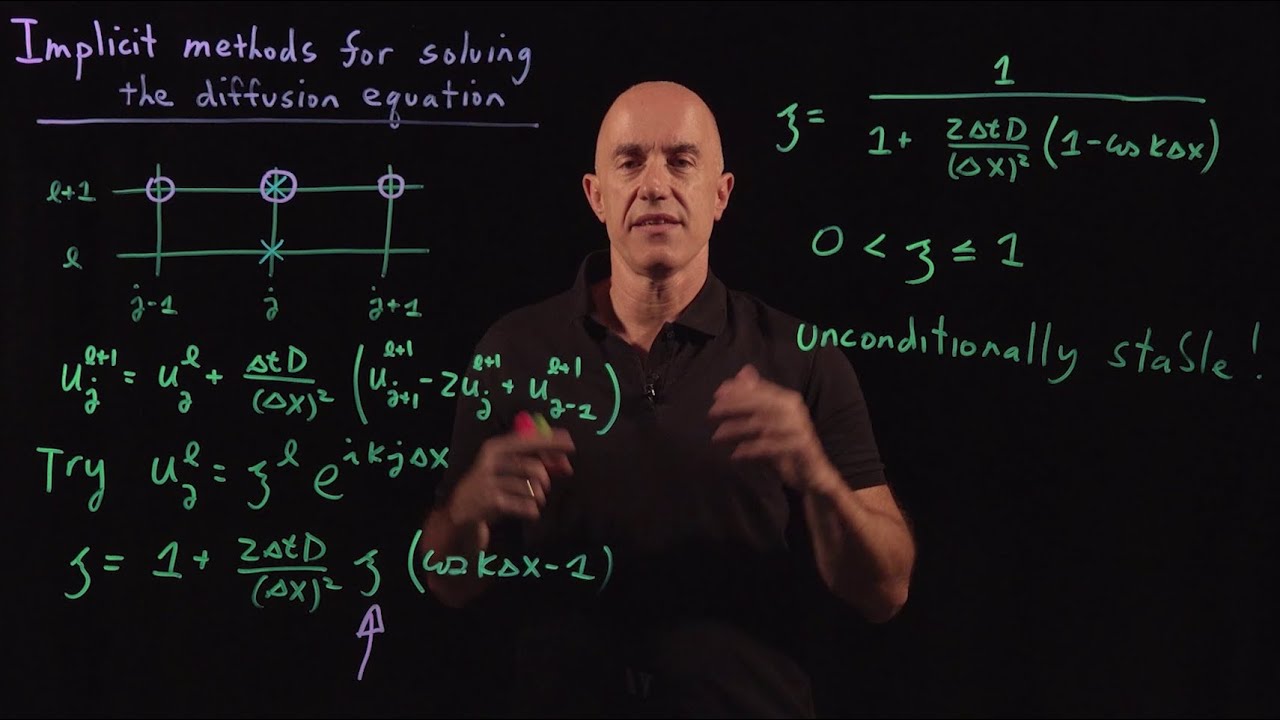 Implicit methods for solving
the diffusion equation
l+1
l
j-1 j j+1
u_j^{l+1} = u_j^l + ΔtD/(Δx)² (u_{j+1}^{l+1} - 2u_j^{l+1} + u_{j-1}^{l+1})
Try u_j^l = ξ^l e^{ikjΔx}
ξ = 1 + 2ΔtD/(Δx)² ξ (cos kΔx - 1)
ξ = 1/(1 + 2ΔtD/(Δx)² (1 - cos kΔx))
0 < ξ ≤ 1
unconditionally stable!